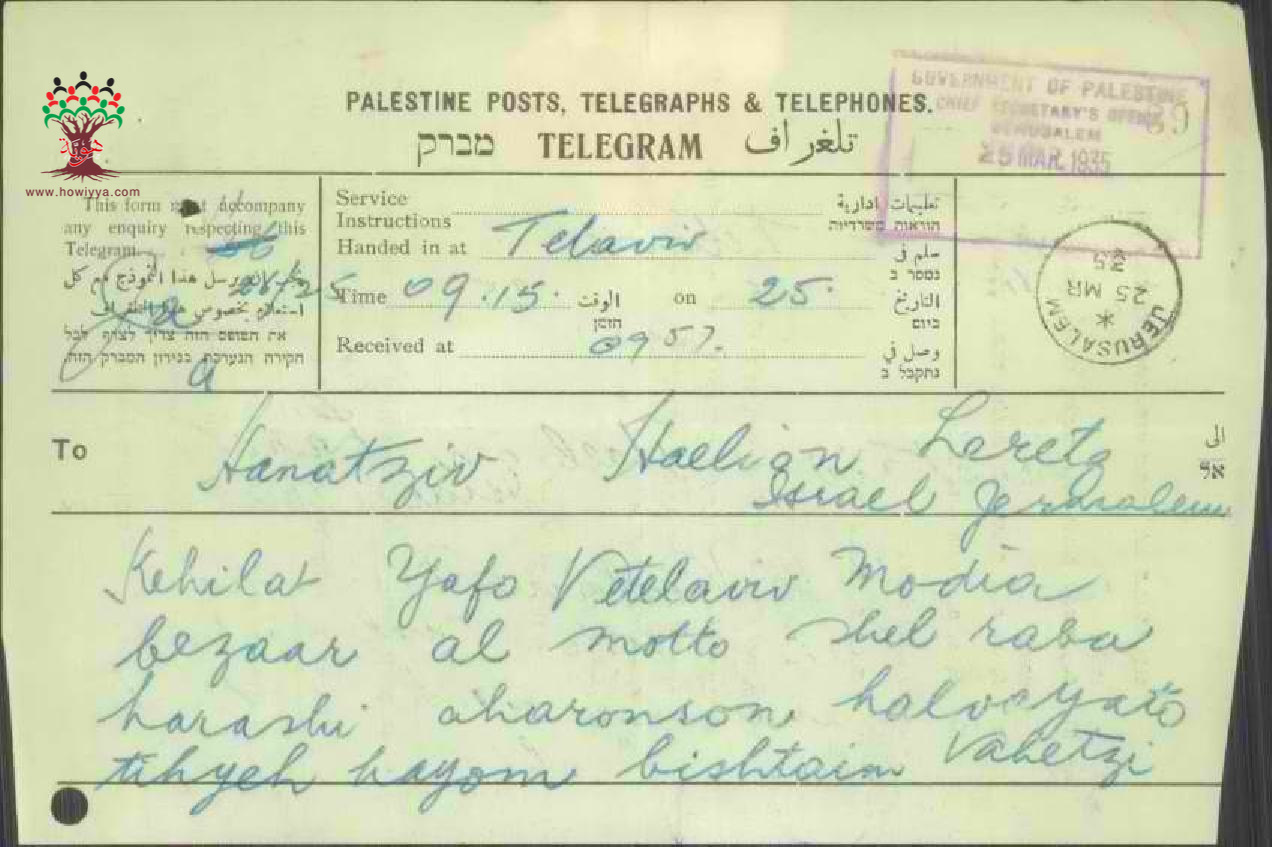 PALESTINE POSTS, TELEGRAPHS & TELEPHONES.
מברק TELEGRAM تلغراف
GOVERNMENT OF PALESTINE
CHIEF SECRETARY'S OFFICE
JERUSALEM
25 MAR. 1935
89
www.howiyya.com
This form must accompany
any enquiry respecting this
Telegram.
يجب ان يرسل هذا النموذج مع كل
استعلام بخصوص هذا التلغراف
את הטופס הזה צריך לצרף לכל
חקירה הנערכת בנידון המברק הזה.
Service تعليمات ادارية
Instructions הוראות משרדיות
Handed in at Telaviv سلم في
נמסר ב
Time 09.15. الوقت on 25. التاريخ
הזמן ביום
Received at 0957. وصل في
נתקבל ב
JERUSALEM
25 MR
35
To Hanatziv Haelion Leretz الى
Israel Jerusalem אל
Kehilat Yafo Vetelaviv Modia
bezaar al motto shel raba
harashi aharonson halvayato
tihyeh hayom bishtaim Vahetzi